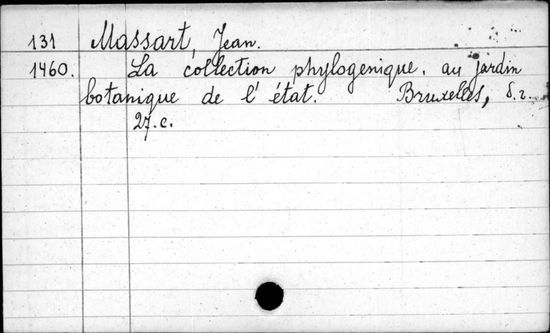 131 Massart, Jean.
1460. La collection phylogenique. au jardin
botanique de l'état. Bruxelles, s.r.
27.c.